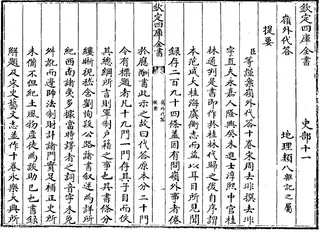 欽定四庫全書　史部十一
嶺外代答　地理類八雜記之屬
提要
臣等謹案嶺外代答十卷宋周去非撰去非
字直夫永嘉人隆興癸未進士淳熙中官桂
林通判是書即作於桂林代歸之後自序謂
本范成大桂海虞衡志而益以耳目所見聞
錄存二百九十四條蓋因有問嶺外事者倦
欽定四庫全書　嶺外代答　提要
於應酬書此示之故曰代答原本分二十門
今有標題者凡十九門一門存其子目而佚
其總綱所言則軍制户籍之事也其書條分
縷晰視嵇含劉恂段公路諸書叙述為詳所
紀西南諸夷多據當時譯者之詞音字未免
舛訛而邊帥法制財計諸門實足補正史所
未備不但紀土風物產徒為談助已也書錄
解題及宋史藝文志並作十卷永樂大典所